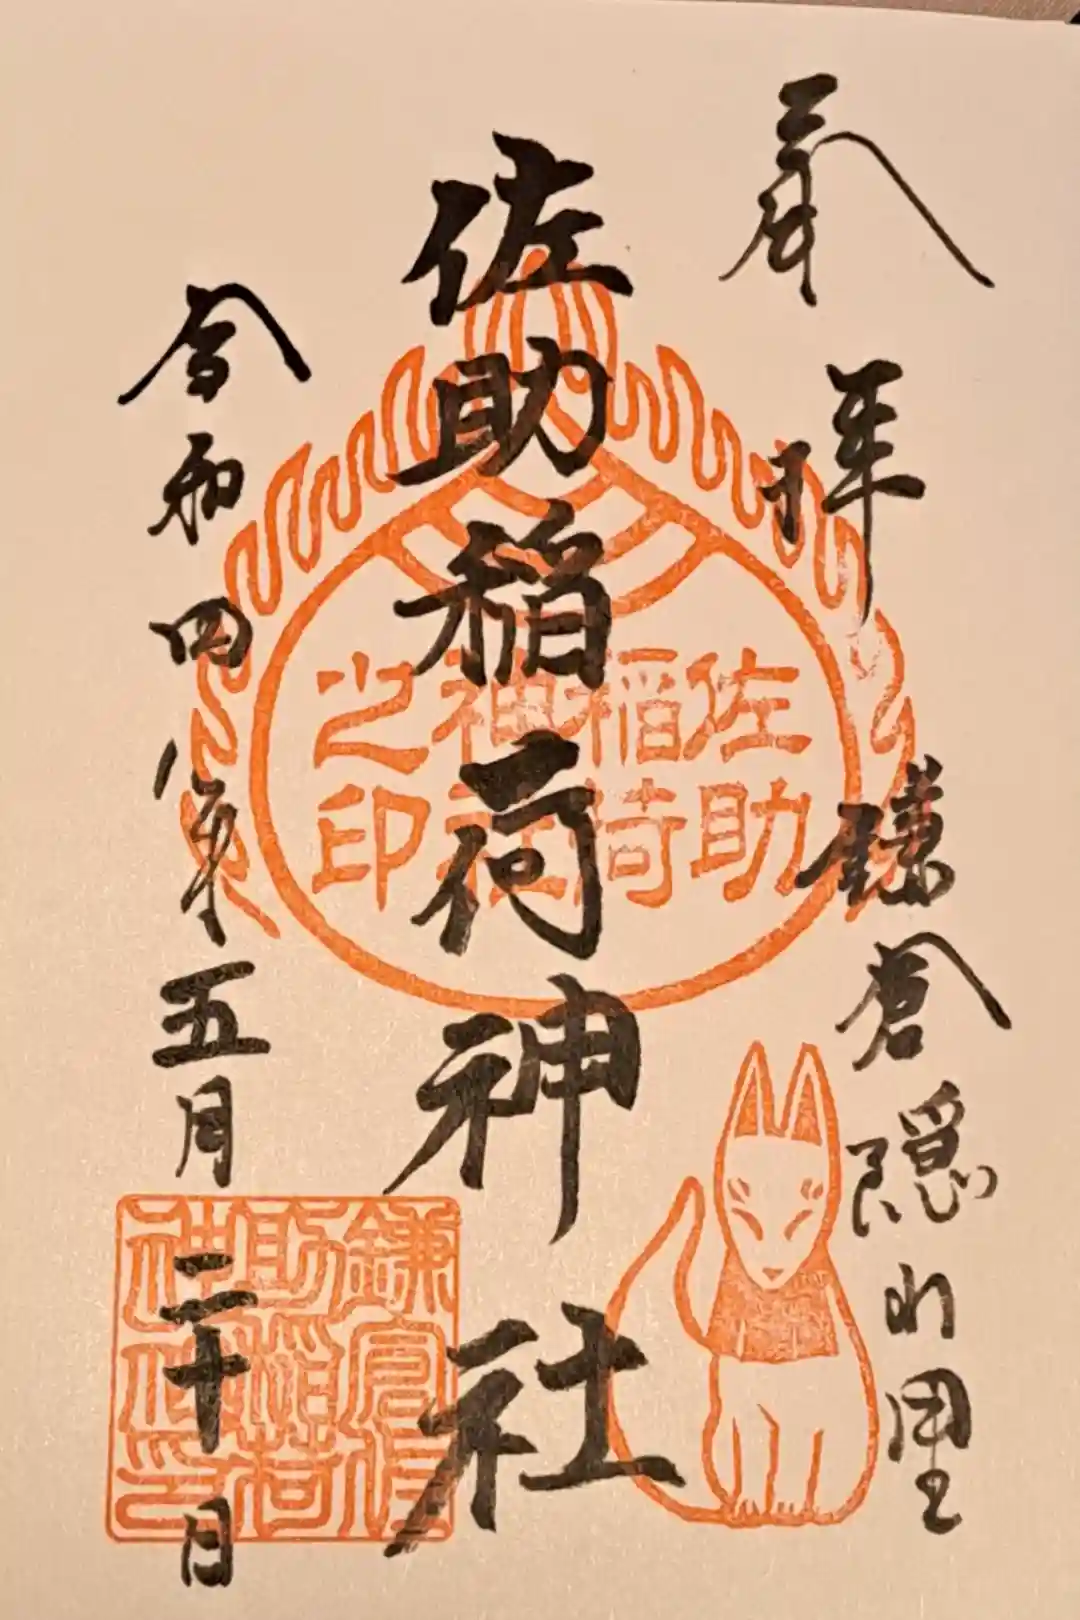 奉拝
鎌倉隠れ里
佐助稲荷神社
佐助
稲荷
神社
之印
令和四年五月二十日
鎌倉佐
助稲荷
神社印